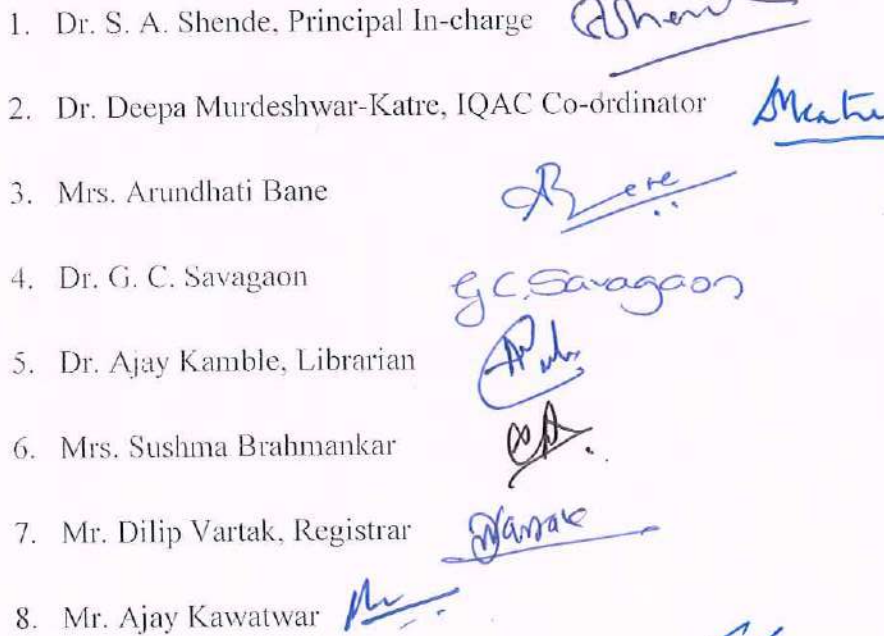 1. Dr. S. A. Shende, Principal In-charge
2. Dr. Deepa Murdeshwar-Katre, IQAC Co-ordinator
3. Mrs. Arundhati Bane
4. Dr. G. C. Savagaon G C. Savagaon
5. Dr. Ajay Kamble, Librarian
6. Mrs. Sushma Brahmankar
7. Mr. Dilip Vartak, Registrar
8. Mr. Ajay Kawatwar